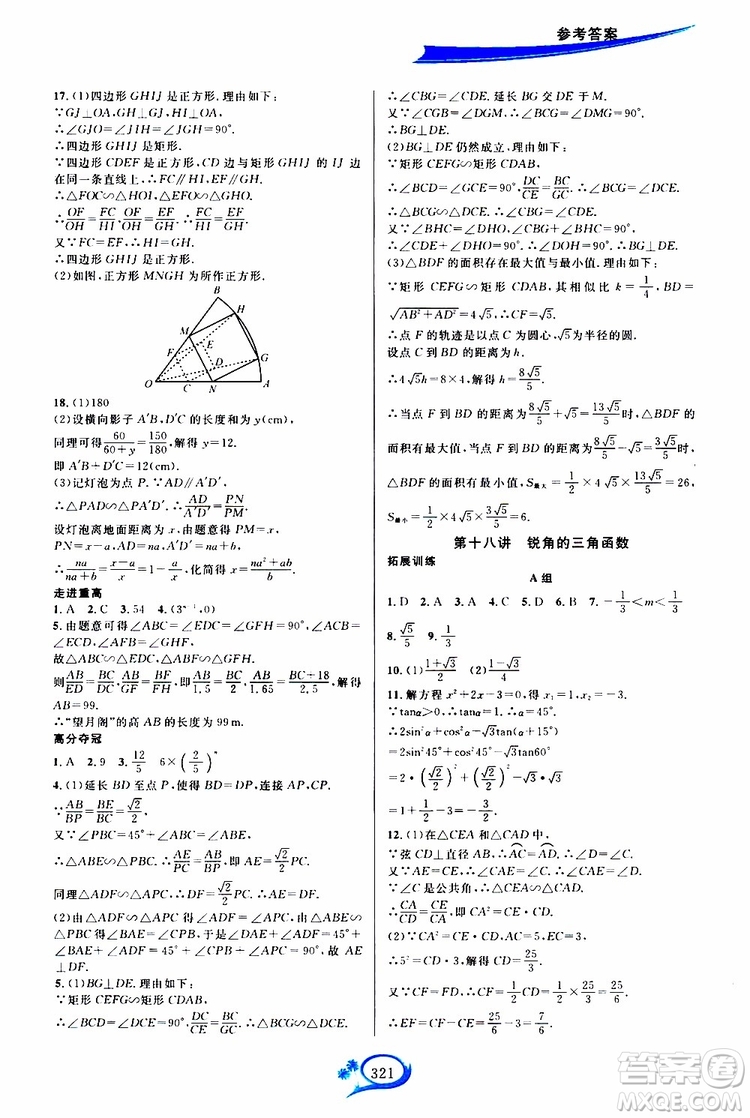 参考答案
17. (1)四边形 GHIJ 是正方形. 理由如下:
∵GJ⊥OA,GH⊥GJ,HI⊥OA,
∴∠GJO=∠JIH=∠JGH=90°.
∴四边形 GHIJ 是矩形.
∵四边形 CDEF 是正方形,CD 边与矩形 GHIJ 的 IJ 边
在同一条直线上,∴FC∥HI,EF∥GH.
∴△FOC∽△HOI,△EFO∽△GHO.
∴OF/OH=FC/HI,OF/OH=EF/GH. ∴FC/HI=EF/GH.
又∵FC=EF,∴HI=GH.
∴四边形 GHIJ 是正方形.
(2)如图,正方形 MNGH 为所作正方形.
B
H
M
E
F
G
D
O
C
N
A
18. (1)180
(2)设横向影子 A′B,D′C 的长度和为 y(cm),
同理可得60/(60+y)=150/180,解得 y=12.
即 A′B+D′C=12(cm).
(3)记灯泡为点 P. ∵AD∥A′D′,
∴△PAD∽△PA′D′. ∴AD/A′D′=PN/PM.
设灯泡离地面距离为 x,由题意得 PM=x,
PN=x−a,AD=na,A′D′=na+b,
∴na/(na+b)=(x−a)/x=1−a/x,化简得 x=(na²+ab)/b.
走进重高
1. A 2. C 3. 54
5. 由题意可得∠ABC=∠EDC=∠GFH=90°,∠ACB
=∠ECD,∠AFB=∠GHF,
故△ABC∽△EDC,△ABF∽△GFH.
则AB/ED=BC/DC,AB/GF=BF/FH,即AB/1.5=BC/2,AB/1.65=(BC+18)/2.5,解得
AB=99.
∴“望月阁”的高 AB 的长度为 99 m.
高分夺冠
1. A 2. 9 3. 12/5 6×(2/5)ⁿ
4. (1)延长 BD 至点 P,使 DP=BD,连接 AP,CP.
∵AB/BP=BE/BC=√2/2,
又∵∠PBC=45°+∠ABC=∠ABE,
∴△ABE∽△PBC. ∴AE/PC=AB/BP=√2/2. ∴AE=√2/2PC.
同理△ADF∽△APC,∴DF=√2/2PC. ∴AE=DF.
(2)由△ADF∽△APC 得∠ADF=∠APC,由△ABE∽
△PBC 得∠BAE=∠CPB,于是∠DAE+∠ADF=45°
+∠BAE+∠APC=45°+∠CPB+∠APC=90°,故 AE
⊥DF.
5. (1)BG⊥DE. 理由如下:
∵矩形 CEFG∽矩形 CDAB,
∴∠BCD=∠DCE=90°,DC/CE=BC/GC. ∴△BCG∽△DCE.
∴∠CBG=∠CDE. 延长 BG 交 DE 于 M.
又∵∠CGB=∠DGM,∴∠DMB=∠DCB=90°.
∴BG⊥DE.
(2)BG⊥DE 仍然成立. 理由如下:
∵矩形 CEFG∽矩形 CDAB,
∴∠BCD=∠GCE=90°,DC/CE=BC/GC.
∴∠BCG=∠DCE. ∴△BCG∽△DCE.
∴∠CBG=∠CDE.
又∵∠BHC=∠DHO,∠CBG+∠BHC=90°,
∴∠CDE+∠DHO=90°. ∴∠DOH=90°. ∴BG⊥DE.
(3)△BDF 的面积存在最大值与最小值. 理由如下:
∵矩形 CEFG∽矩形 CDAB,且相似比 k=1/4,
√(AB²+AD²)=4√5,∴CF=√5.
∴点 F 的轨迹是以点 C 为圆心,√5为半径的圆.
设点 C 到 BD 的距离为 h.
∴4√5h=8×4,解得 h=8√5/5.
∴当点 F 到 BD 的距离为8√5/5+√5=13√5/5时,△BDF 的
面积有最大值,当点 F 到 BD 的距离为8√5/5−√5=3√5/5时,
△BDF 的面积有最小值,S最大=1/2×4√5×13√5/5=26,
S最小=1/2×4√5×3√5/5=6.
第十八讲 锐角的三角函数
拓展训练
A 组
1. D 2. A 3. D 4. A 5. B 6. B 7. −1/3<m<1/3
8. √5/5 9. 1/4
10. (1)(1+√3)/2 (2)(1−√3)/4
11. 解方程 x²+2x−3=0,得 x₁=1,x₂=−3.
∵tanα>0,∴tanα=1,∴α=45°.
∴2sin²α+cos²α−√3tan(α+15°)
=2sin²45°+cos²45°−√3tan60°
=2·(√2/2)²+(√2/2)²−√3·√3
=1+1/2−3
=−3/2.
12. (1)在△CEA 和△CAD 中,
∵弦 CD⊥直径 AB,∴AC=AD. ∴∠D=∠ACD.
又∵AE=CE,∴∠CAE=∠ACE.
∵∠C 是公共角,∴△CEA∽△CAD.
∴CA/CD=CE/CA,即 CA²=CE·CD.
(2)∵CA²=CE·CD,AC=5,EC=3,
∴5²=3·CD,解得 CD=25/3.
又∵CF=FD,∴CF=1/2CD=1/2×25/3=25/6.
∴EF=CF−CE=25/6−3=7/6.
321
答案圈
MXQE.COM